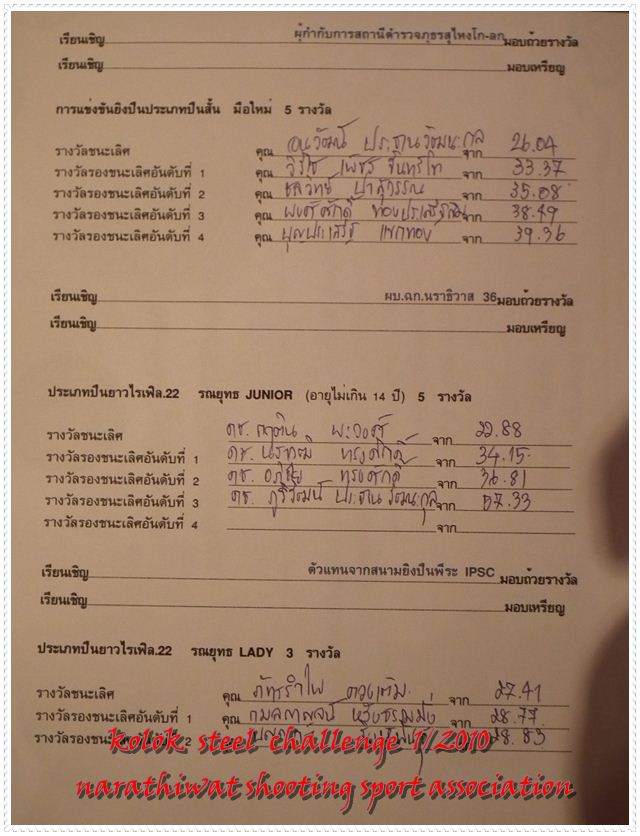 เรียนเชิญ ผู้กำกับการสถานีตำรวจภูธรสุไหงโก-ลก มอบถ้วยรางวัล
เรียนเชิญ มอบเหรียญ
การแข่งขันยิงปืนประเภทปืนสั้น มือใหม่ 5 รางวัล
รางวัลชนะเลิศ คุณ อนุวัฒน์ ประธานวัฒนะกุล จาก 26.04
รางวัลรองชนะเลิศอันดับที่ 1 คุณ เพชร จันทร์โท จาก 33.37
รางวัลรองชนะเลิศอันดับที่ 2 คุณ จาก 35.08
รางวัลรองชนะเลิศอันดับที่ 3 คุณ พงศ์ศักดิ์ จาก 38.49
รางวัลรองชนะเลิศอันดับที่ 4 คุณ บุญประเสริฐ จาก 39.36
เรียนเชิญ ผบ.ฉก.นราธิวาส 36 มอบถ้วยรางวัล
เรียนเชิญ มอบเหรียญ
ประเภทปืนยาวไรเฟิล.22 รณยุทธ JUNIOR (อายุไม่เกิน 14 ปี) 5 รางวัล
รางวัลชนะเลิศ ดช. จาก 22.88
รางวัลรองชนะเลิศอันดับที่ 1 ดช. ทรงศักดิ์ จาก 34.15
รางวัลรองชนะเลิศอันดับที่ 2 ดช. อภิชัย ทรงศักดิ์ จาก 36.81
รางวัลรองชนะเลิศอันดับที่ 3 ดช. ภูริวัฒน์ ประธานวัฒนะกุล จาก 57.33
รางวัลรองชนะเลิศอันดับที่ 4 จาก
เรียนเชิญ ตัวแทนจากสนามยิงปืนพีระ IPSC มอบถ้วยรางวัล
เรียนเชิญ มอบเหรียญ
ประเภทปืนยาวไรเฟิล.22 รณยุทธ LADY 3 รางวัล
รางวัลชนะเลิศ คุณ ภัทรรำไพ จาก 27.41
รางวัลรองชนะเลิศอันดับที่ 1 คุณ กมลกาญจน์ จาก 28.77
รางวัลรองชนะเลิศอันดับที่ 2 28.83
kolok steel challenge 1/2010
narathiwat shooting sport association